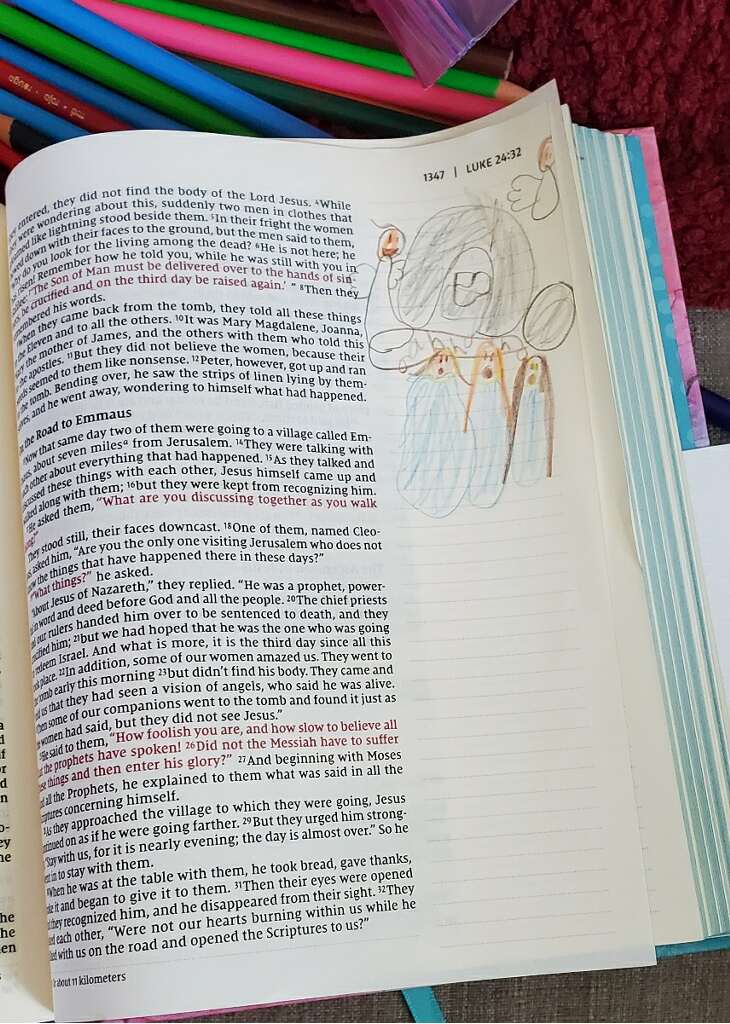 1347 | LUKE 24:32
entered, they did not find the body of the Lord Jesus. 4While
were wondering about this, suddenly two men in clothes that
like lightning stood beside them. 5In their fright the women
down with their faces to the ground, but the men said to them,
do you look for the living among the dead? 6He is not here; he
risen! Remember how he told you, while he was still with you in
'The Son of Man must be delivered over to the hands of sin-
be crucified and on the third day be raised again.' " 8Then they
remembered his words.
When they came back from the tomb, they told all these things
the Eleven and to all the others. 10It was Mary Magdalene, Joanna,
the mother of James, and the others with them who told this
the apostles. 11But they did not believe the women, because their
seemed to them like nonsense. 12Peter, however, got up and ran
the tomb. Bending over, he saw the strips of linen lying by them-
and he went away, wondering to himself what had happened.
the Road to Emmaus
Now that same day two of them were going to a village called Em-
about seven miles a from Jerusalem. 14They were talking with
each other about everything that had happened. 15As they talked and
discussed these things with each other, Jesus himself came up and
walked along with them; 16but they were kept from recognizing him.
He asked them, "What are you discussing together as you walk
They stood still, their faces downcast. 18One of them, named Cleo-
asked him, "Are you the only one visiting Jerusalem who does not
the things that have happened there in these days?"
"What things?" he asked.
"About Jesus of Nazareth," they replied. "He was a prophet, power-
in word and deed before God and all the people. 20The chief priests
our rulers handed him over to be sentenced to death, and they
him; 21but we had hoped that he was the one who was going
redeem Israel. And what is more, it is the third day since all this
place. 22In addition, some of our women amazed us. They went to
tomb early this morning 23but didn't find his body. They came and
us that they had seen a vision of angels, who said he was alive.
Then some of our companions went to the tomb and found it just as
women had said, but they did not see Jesus."
He said to them, "How foolish you are, and how slow to believe all
the prophets have spoken! 26Did not the Messiah have to suffer
these things and then enter his glory?" 27And beginning with Moses
all the Prophets, he explained to them what was said in all the
concerning himself.
As they approached the village to which they were going, Jesus
continued on as if he were going farther. 29But they urged him strong-
"Stay with us, for it is nearly evening; the day is almost over." So he
in to stay with them.
When he was at the table with them, he took bread, gave thanks,
it and began to give it to them. 31Then their eyes were opened
they recognized him, and he disappeared from their sight. 32They
each other, "Were not our hearts burning within us while he
with us on the road and opened the Scriptures to us?"
about 11 kilometers